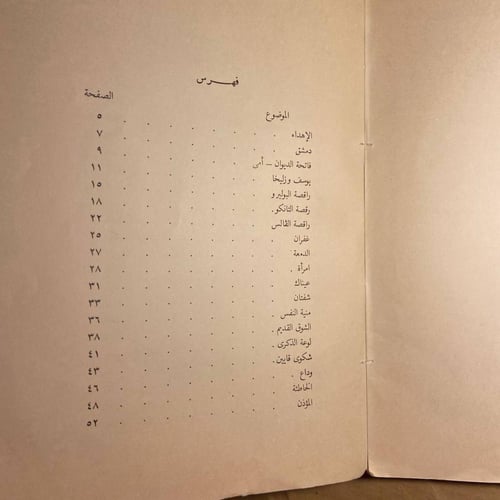 فهرس
الموضوع الصفحة
الإهداء . . . . . . . ٥
دمشق . . . . . . . ٧
فاتحة الديوان – أمي . . . . . . ٩
يوسف وزليخا . . . . . . ١١
راقصة البوليرو . . . . . . ١٥
رقصة التانكو . . . . . . . ١٨
راقصة الڤالس . . . . . . ٢٢
غفران . . . . . . . ٢٥
الدمعة . . . . . . . ٢٧
امرأة . . . . . . . ٢٨
عيناك . . . . . . . ٣١
شفتان . . . . . . . ٣٣
منية النفس . . . . . . . ٣٦
الشوق القديم . . . . . . . ٣٨
لوعة الذكرى . . . . . . . ٤١
شكوى قايين . . . . . . . ٤٣
وداع . . . . . . . ٤٦
الخاطئة . . . . . . . ٤٨
المؤذن . . . . . . . ٥٢